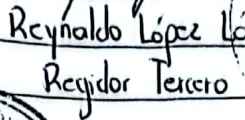 Reynaldo López Ló
Regidor Tercero